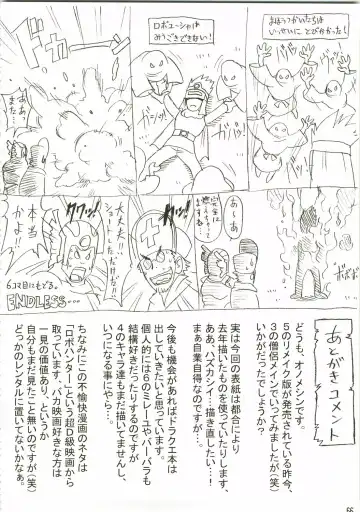 まほうつかいたちは
いっせいに とびかかった!
ロボユーシャは
みうごきできない!
ガバッ
ガバッ
ドカァーン
ああ?
また…
あ~あ
完全に
大丈夫!
本当
かよ!!
6コマ目にもどる。
ENDLESS…
あとがきコメント
どうも、オノメシンです。
5のリメイク版が発売されている昨今、
3の僧侶メインでいってみましたが(笑)
いかがだったでしょうか?
実は今回の表紙は都合により
去年描いたものを使っていたりします、
ああハズカシイ…!描き直したい…!
まぁ自業自得なのですが…。
今後も機会があればドラクエ本は
出していきたいと思っています。
個人的には6のミレーユやバーバラも
結構好きだったりするのですが
4のキャラ達もまだ描いてませんし、
いつになる事にやら…。
ちなみにこの不愉快漫画のネタは
「ロボハンター」という超D級映画から
取っています、バカ映画好きな方は
一見の価値あり、というか
自分もまだ見たこと無いのですが(笑)
どっかのレンタルに置いてないかなぁ。
66